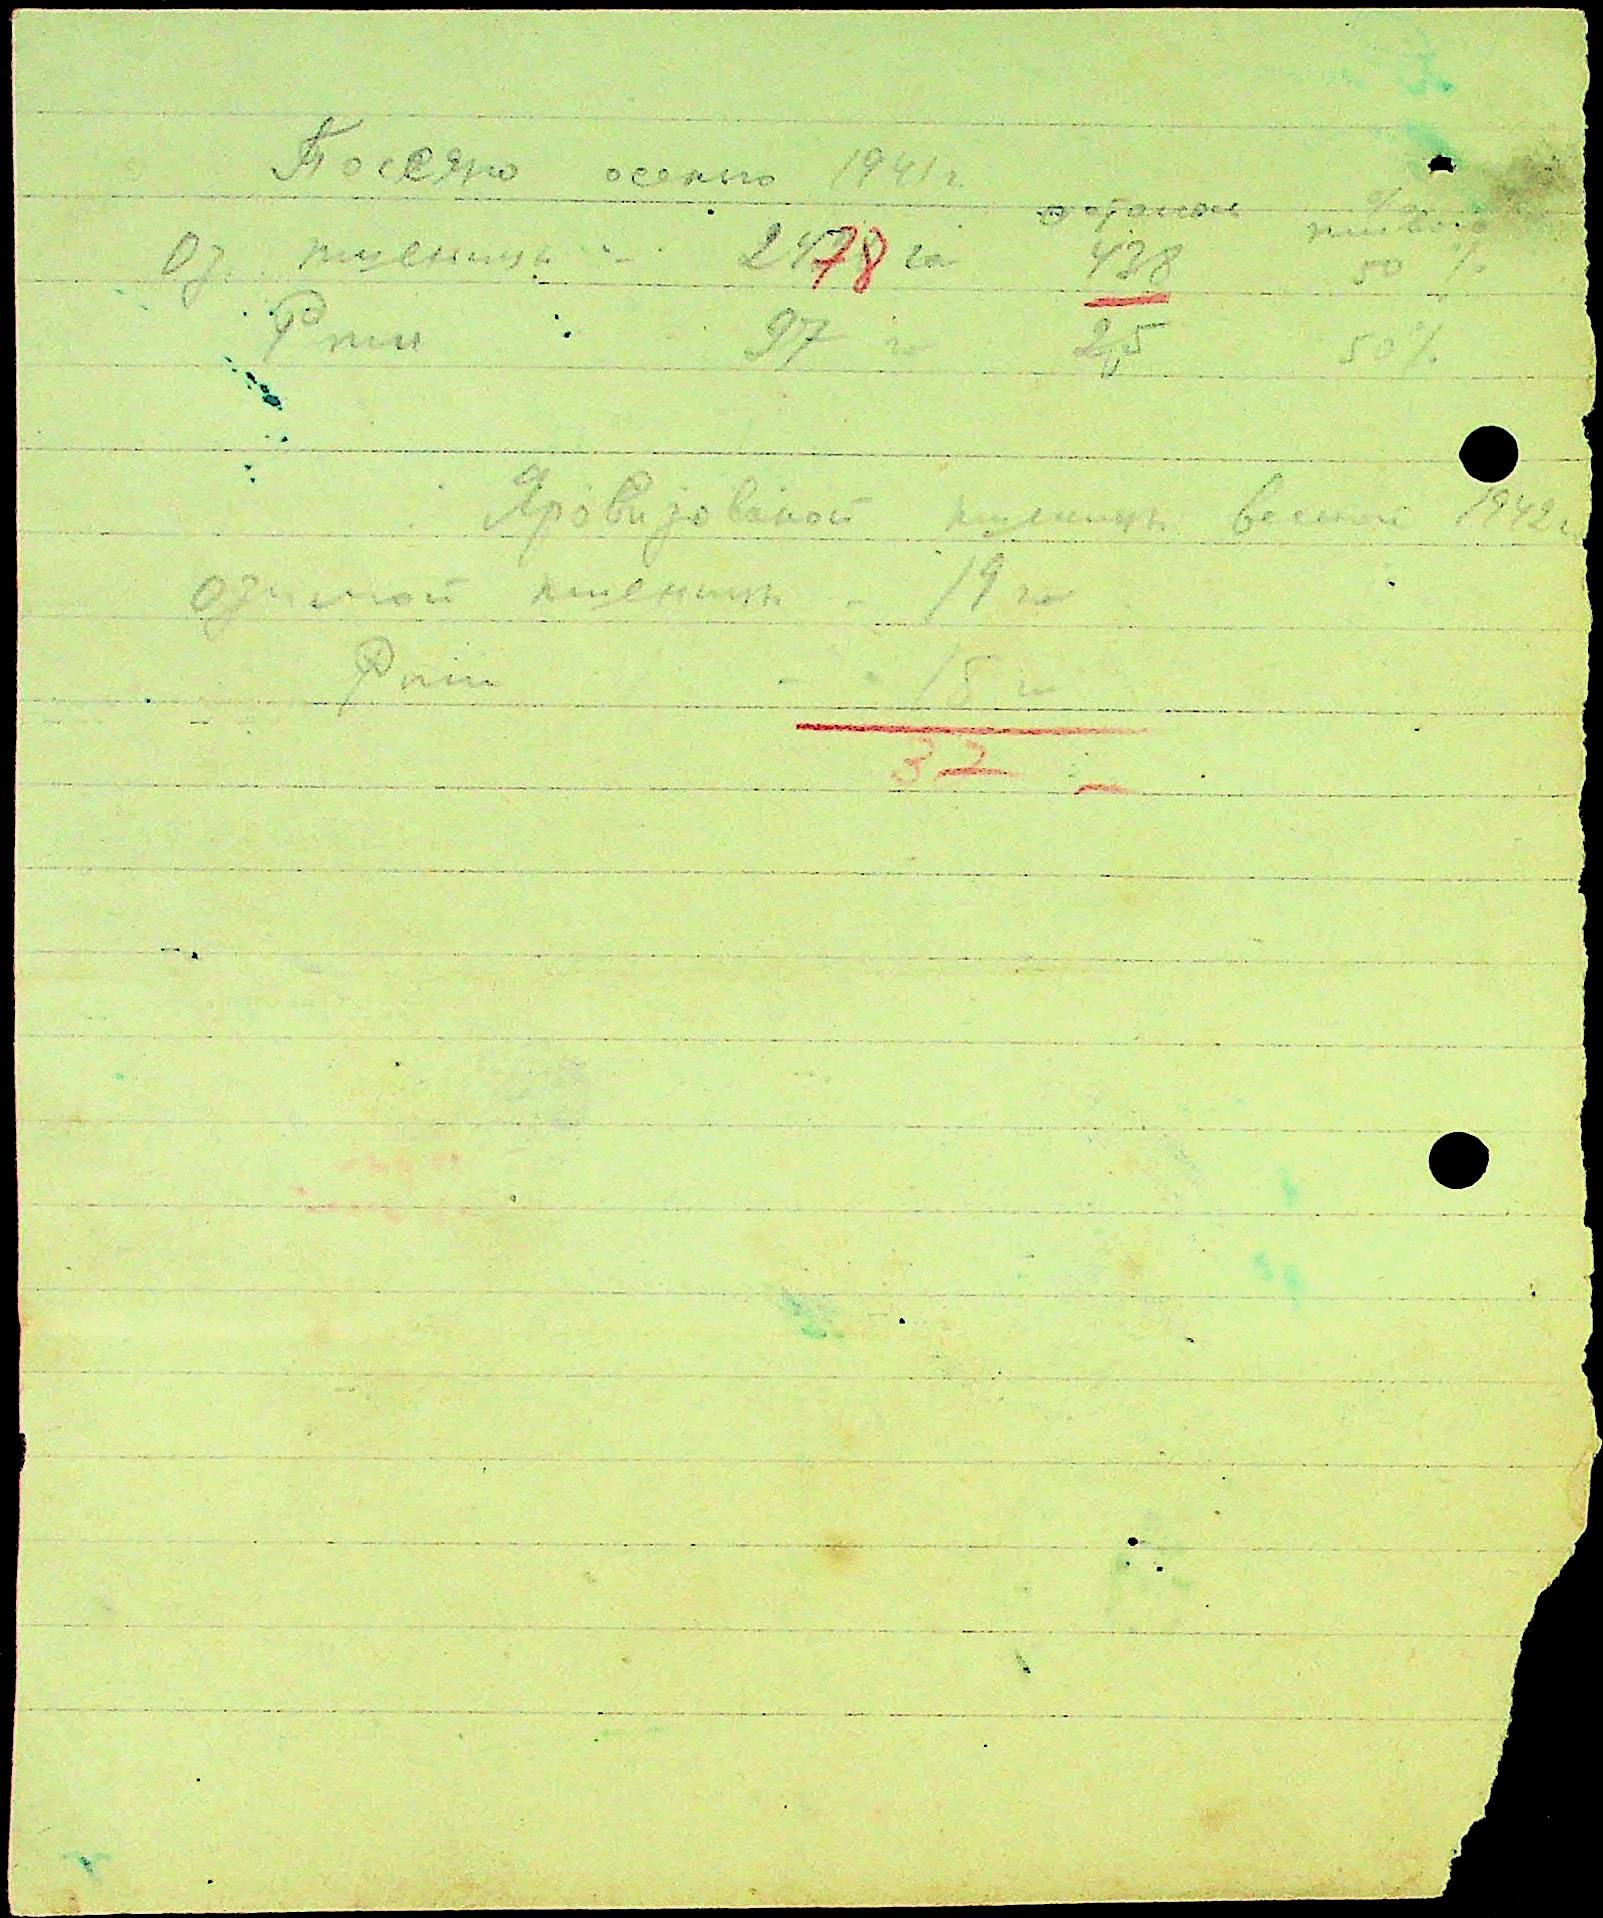 Посеяно осенью 1941 г
остаток %
Оз. пшеницы - 2478 га 438 50 %
Ржи 97 га 25 50%
Яровизованой пшеницы весной 1942 г
озимой пшеницы - 19 га
Ржи - - 18 га
37